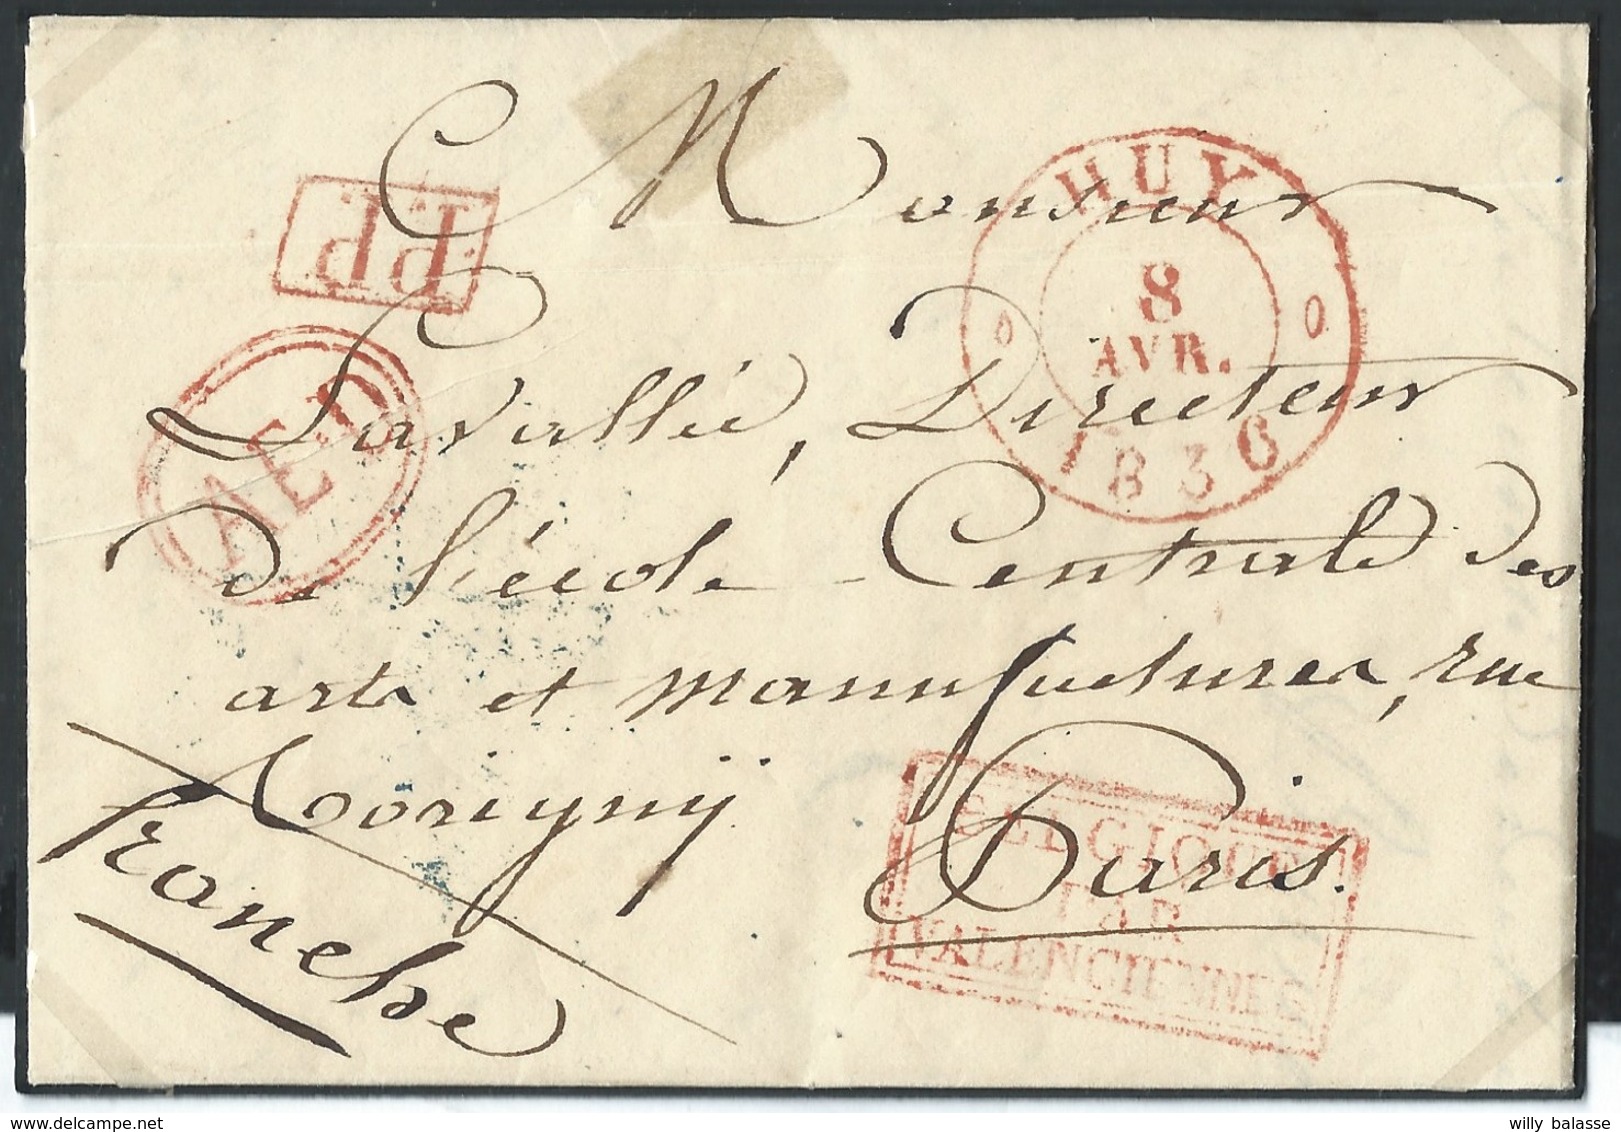 Monsieur
PP
HUY
8
AVR.
1836
Lavallée, Directeur
AED
de l'école Centrale des
arts et manufactures, rue
Thorigny
Paris.
BELGIQUE
PAR
VALENCIENNES
franche
willy balasse